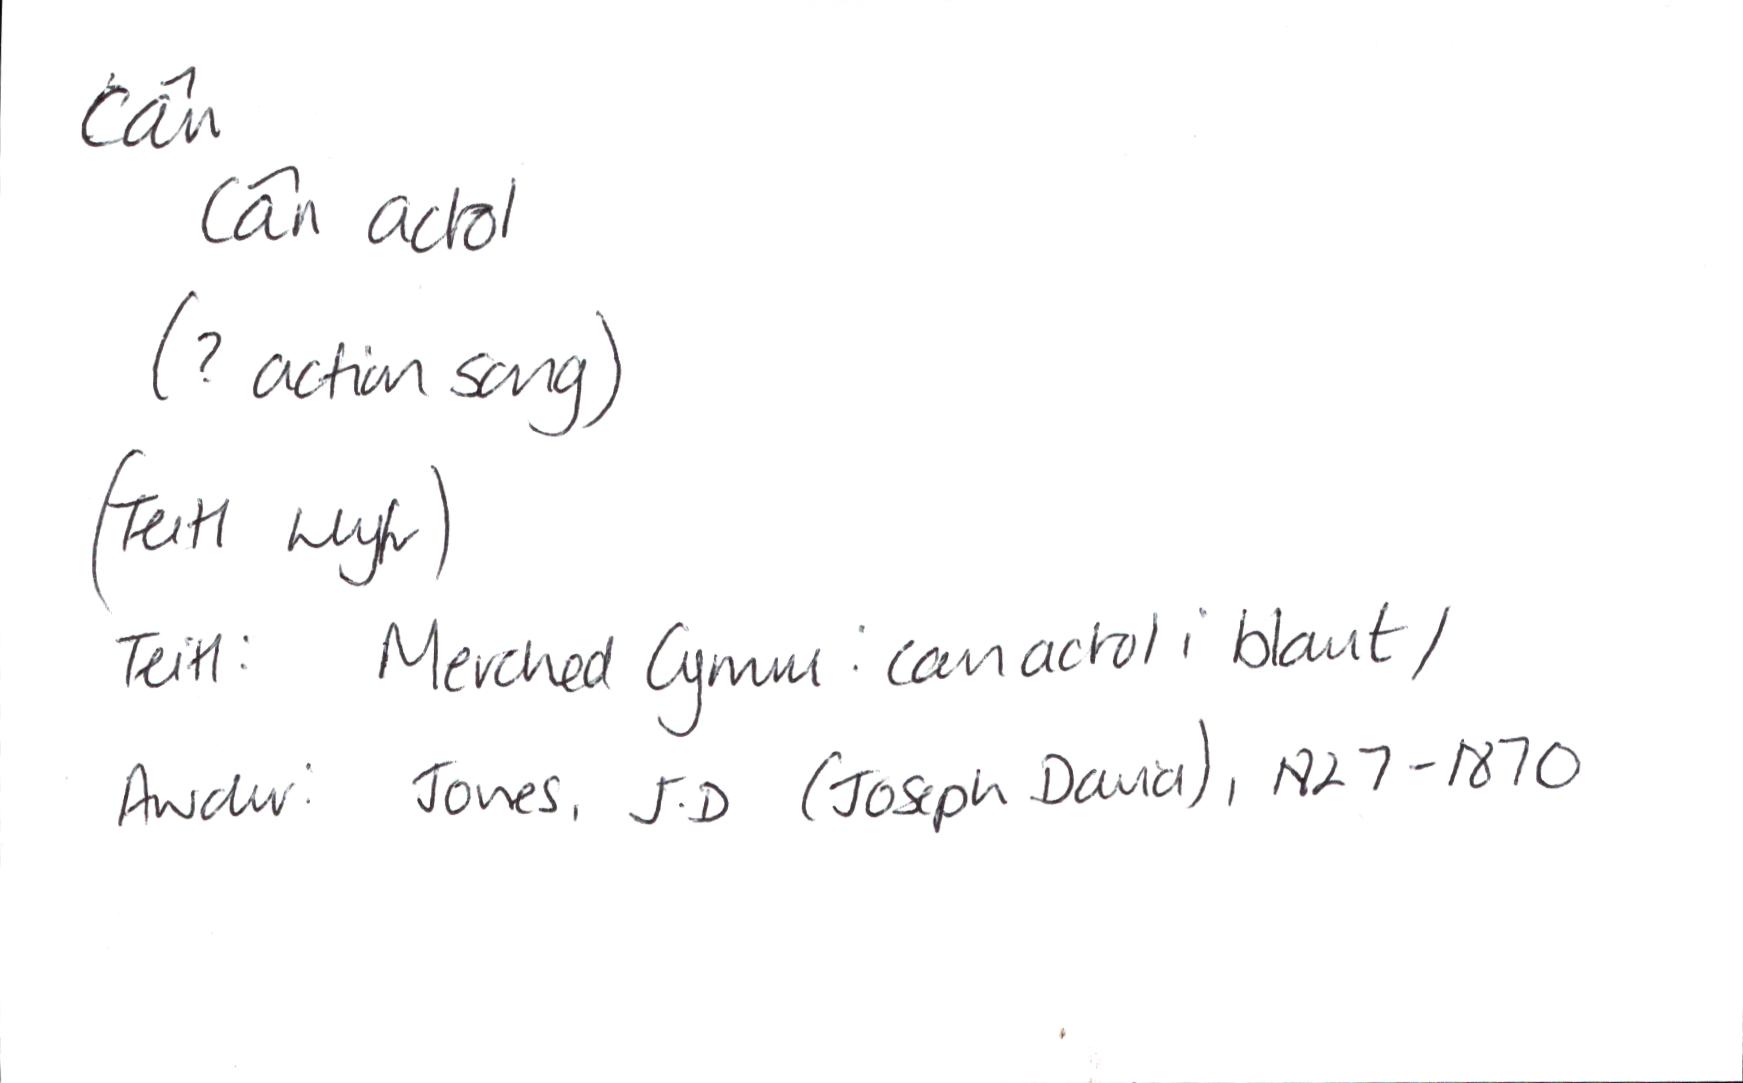 Cân
Cân actol
(? action song)
(Teitl Llyfr)
Teitl: Merched Cymru : can actol i blant /
Awdur: Jones, J.D (Joseph David), 1827-1870